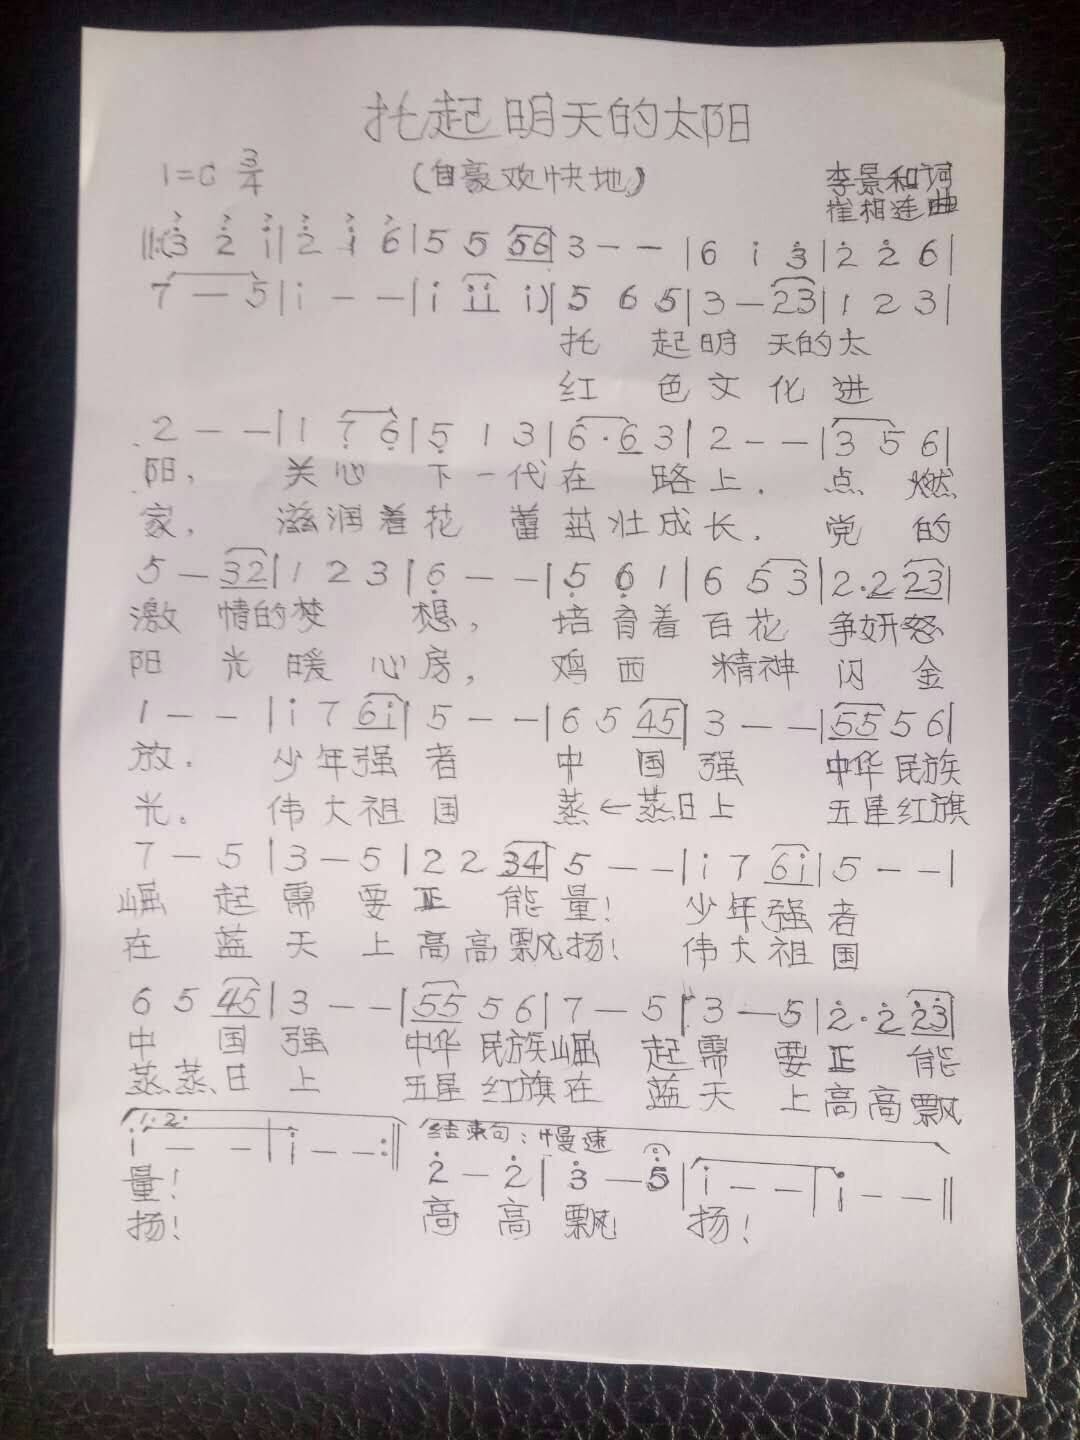 托起明天的太阳
1=C 3/4 (自豪欢快地) 李景和词
崔相连曲
‖:(3̇ 2̇ i|2̇ i 6|5 5 56|3 - - |6 i 3̇|2̇ 2̇ 6|
7 — 5|i - - |i ii i)|5 6 5|3 — 23|1 2 3|
托 起 明 天的太
红 色 文 化 进
2 - - |1 7̣ 6̣|5̣ 1 3|6·6 3|2 - - |3 5 6|
阳, 关心 下一代在 路上. 点 燃
家, 滋润着花 蕾茁壮成长. 党 的
5 — 32|1 2 3|6̣ - - |5̣ 6̣ 1|6 5 3|2·2 23|
激 情的梦 想, 培育着百花 争妍怒
阳 光 暖 心房, 鸡西 精神 闪 金
1 - - |i 7 6i|5 - - |6 5 45|3 - - |55 5 6|
放. 少年强 者 中 国 强 中华 民族
光。 伟大祖 国 蒸←蒸日上 五星红旗
7 — 5|3 — 5|2 2 34|5 - - |i 7 6i|5 - - |
崛 起 需 要 正 能 量! 少年强 者
在 蓝 天 上 高高飘扬! 伟大祖国
6 5 45|3 - - |55 5 6|7 — 5|3 — 5|2̇·2̇ 2̇3̇|
中 国 强 中华 民族崛 起需 要正 能
蒸蒸日 上 五星 红旗在 蓝天 上高高飘
1.2. 结束句:慢速
i - - |i - - :‖ 2̇ — 2̇|3̇ — 5̇|i - - |i - - ‖
量! 高 高 飘 扬!
扬!